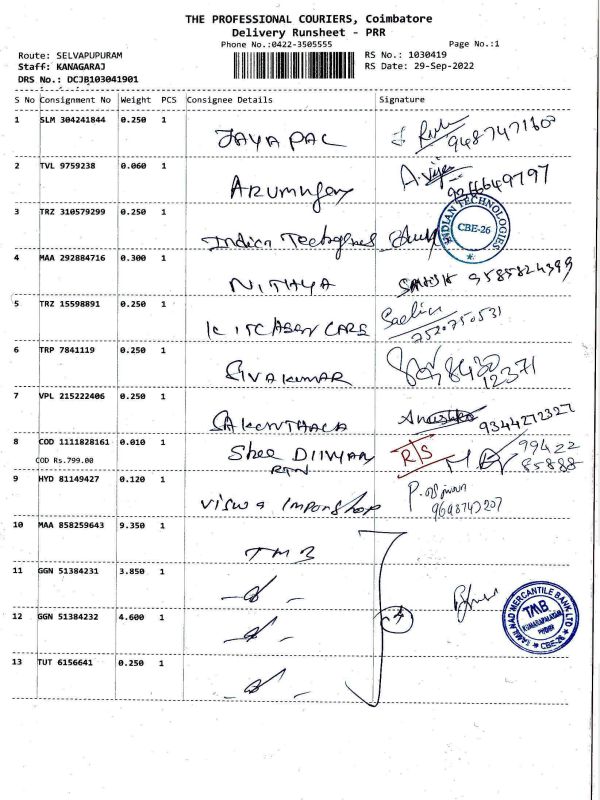 THE PROFESSIONAL COURIERS, Coimbatore
Delivery Runsheet - PRR
Phone No.:0422-3505555
Page No.:1
Route: SELVAPUPURAM
RS No.: 1030419
Staff: KANAGARAJ
RS Date: 29-Sep-2022
DRS No.: DCJB103041901
S No Consignment No Weight PCS Consignee Details Signature
1 SLM 304241844 0.250 1 JAYAPAL
2 TVL 9759238 0.060 1 ARumugam A.
3 TRZ 310579299 0.250 1 Indian
INDIAN TECHNOLOGIES
CBE-26
4 MAA 292884716 0.300 1 NITHYA 9585824399
5 TRZ 15598891 0.250 1 KITCHEN CARE
7520750531
6 TRP 7841119 0.250 1 SIVAKUMAR
12371
7 VPL 215222406 0.250 1 SAKUNTHALA 9344272327
8 COD 1111828161 0.010 1 Shree R/S 99422
COD Rs.799.00 RTN 85888
9 HYD 81149427 0.120 1 Viswa P.
9698742207
10 MAA 858259643 9.350 1 TMB
11 GGN 51384231 3.850 1
TAMIL NAD MERCANTILE BANK LTD
TMB
CBE-26
12 GGN 51384232 4.600 1
13 TUT 6156641 0.250 1